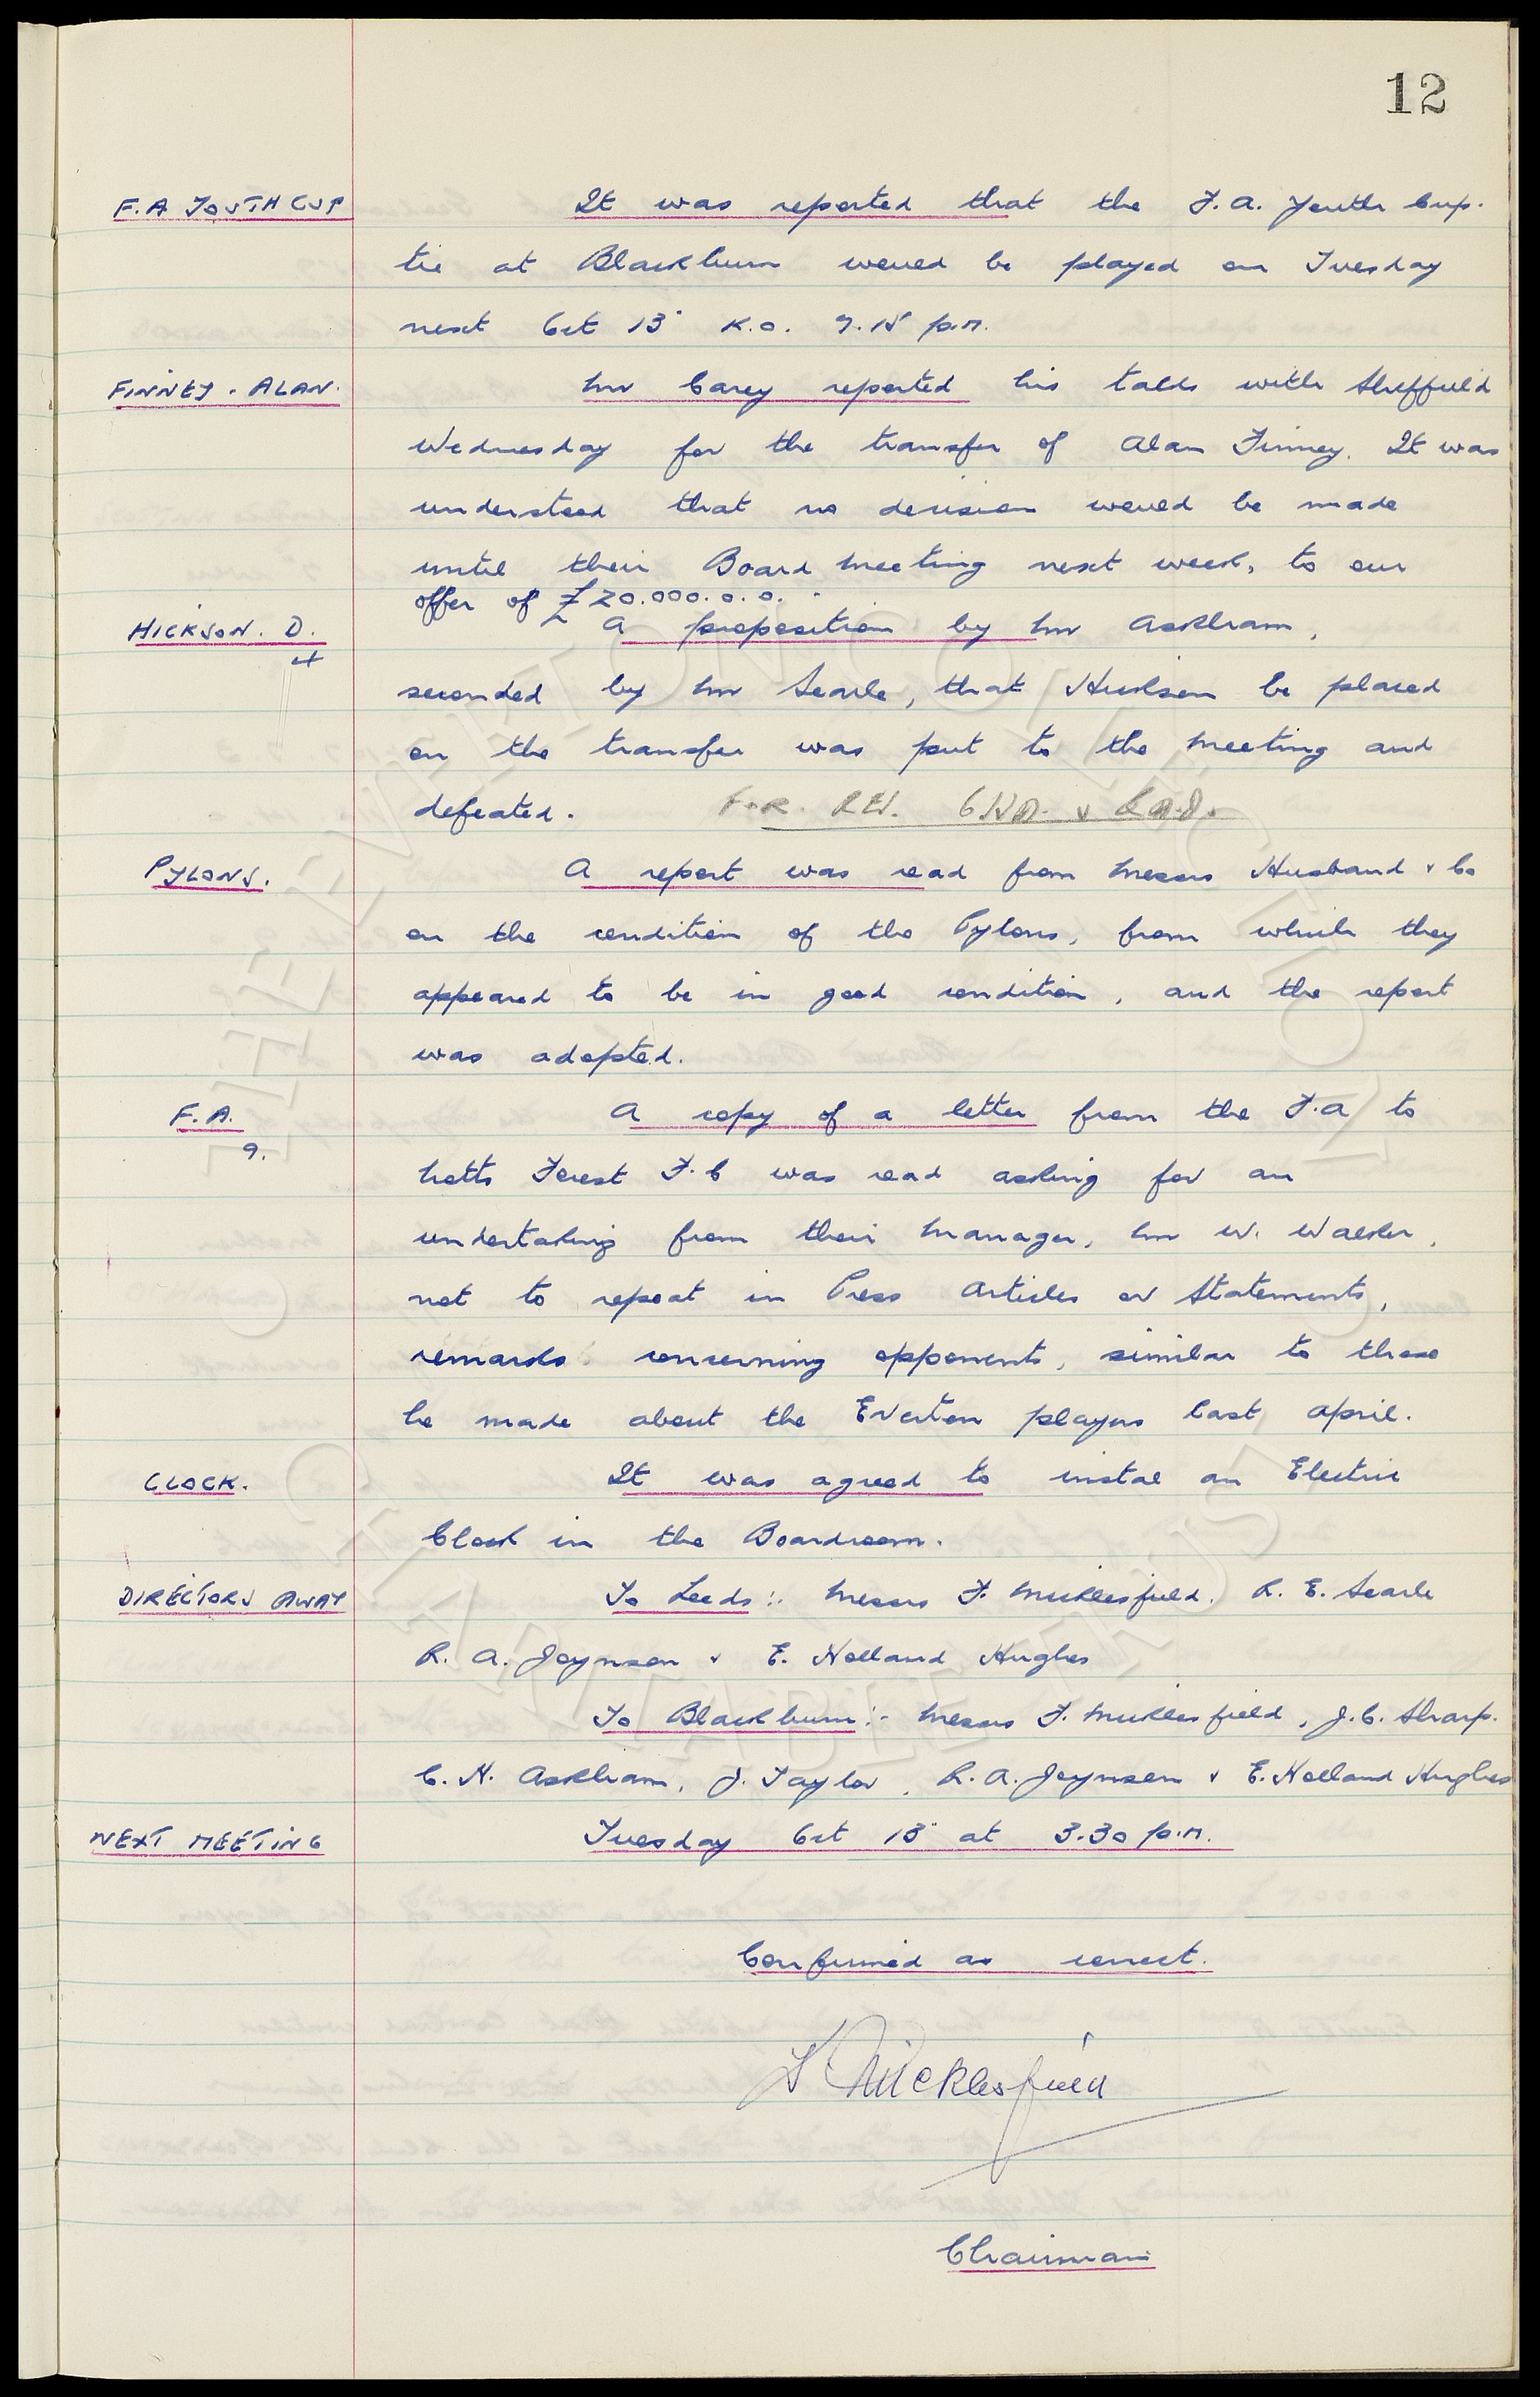 12
F.A YOUTH CUP It was reported that the F.A. Youth Cup.
tie at Blackburn would be played on Tuesday
next Oct 13" K.O. 7.15 p.m.
FINNEY. ALAN. Mr Carey reported his talks with Sheffield
Wednesday for the transfer of Alan Finney. It was
understood that no decision would be made
until their Board meeting next week, to our
offer of £20.000.0.0.
HICKSON. D. A proposition by Mr Askham,
4
seconded by Mr Searle, that Hickson be placed
on the transfer was put to the meeting and
defeated. FOR.
PYLONS. A report was read from Messrs Husband & Co
on the condition of the Pylons, from which they
appeared to be in good condition, and the report
was adopted.
F.A. A copy of a letter from the F.A to
9.
Notts Forest F.C was read asking for an
undertaking from their Manager, Mr W. Walker,
not to repeat in Press Articles or Statements,
remarks concerning opponents, similar to those
he made about the Everton players last April.
CLOCK. It was agreed to instal an Electric
Clock in the Boardroom.
DIRECTORS AWAY To Leeds:. Messrs F. Micklesfield. R. E. Searle
R. A. Joynson & E. Holland Hughes
To Blackburn:- Messrs F. Micklesfield, J.C. Sharp.
C. H. Askham, J. Taylor, R.A. Joynson & E. Holland Hughes
NEXT MEETING Tuesday Oct 13" at 3.30 p.m.
Confirmed as correct.
F Micklesfield
Chairman
THE EVERTON COLLECTION
CHARITABLE TRUST